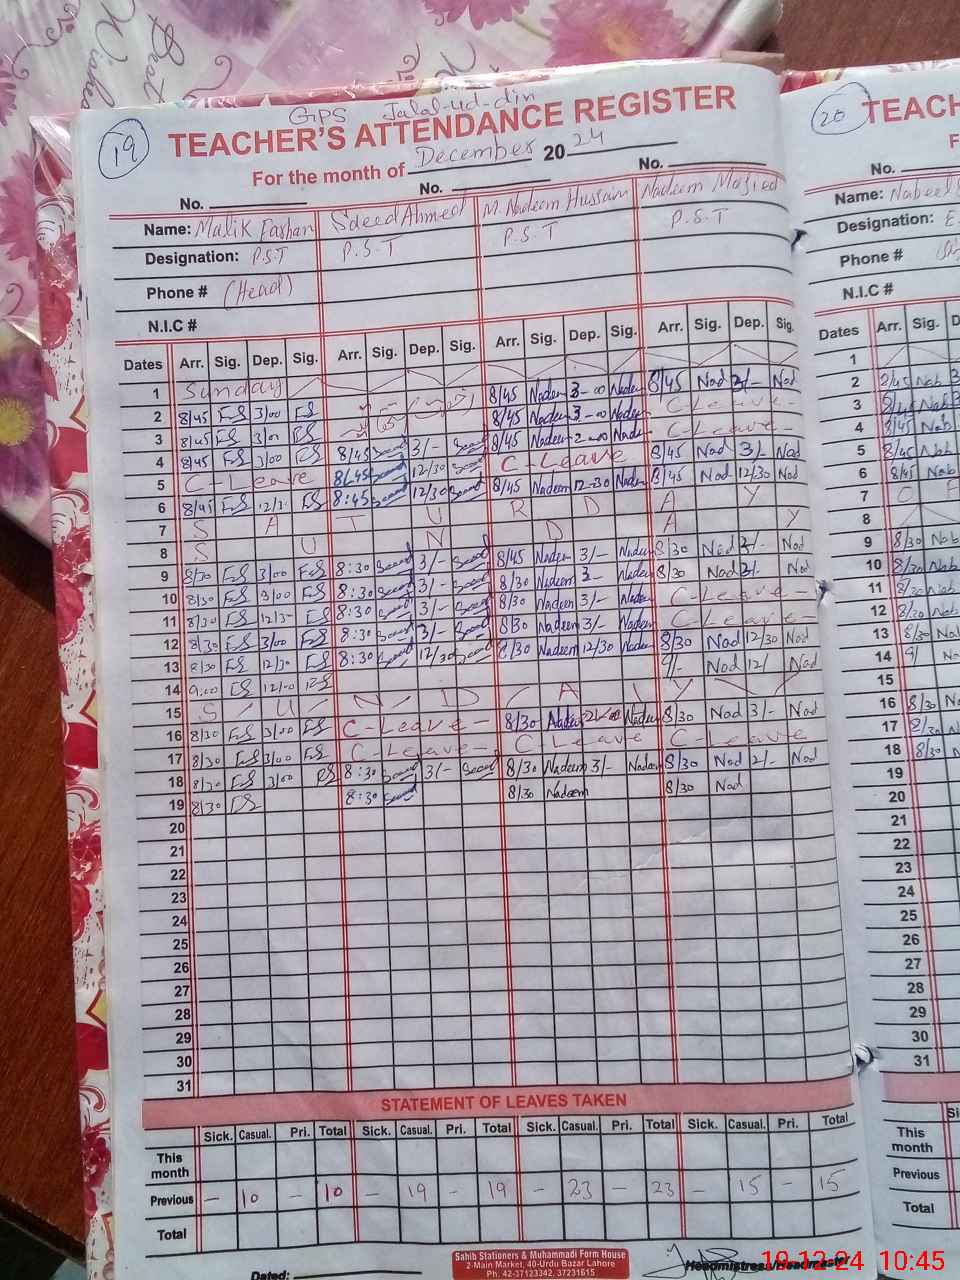 GPS Jalal-ud-din
19 TEACHER'S ATTENDANCE REGISTER
For the month of December 20 24
No. No. No.
Name: Malik Fashan Saeed Ahmed M. Nadeem Hussain Nadeem Majied
Designation: P.S.T P.S.T P.S.T P.S.T
Phone # (Head)
N.I.C #
Dates Arr. Sig. Dep. Sig. Arr. Sig. Dep. Sig. Arr. Sig. Dep. Sig. Arr. Sig. Dep. Sig.
1 Sunday
2 8/45 FS 3/00 FS 8/45 Nadeem 3-00 Nadeem 8/45 Nad 3/- Nad
3 8/45 FS 3/00 FS 8/45 Nadeem 3-00 Nadeem C-Leave-
4 8/45 FS 3/00 FS 8/45 Saeed 3/- Saeed 8/45 Nadeem 2-00 Nadeem C-Leave-
5 C-Leave 8/45 Saeed 12/30 Saeed C-Leave 8/45 Nad 3/- Nad
6 8/45 FS FS 8:45 Saeed 12/30 Saeed 8/45 Nadeem 12-30 Nadeem 8/45 Nad 12/30 Nad
7 S A T U R D A Y
8 S U N D A Y
9 8/30 FS 3/00 FS 8:30 Saeed 3/- Saeed 8/45 Nadeem 3/- Nadeem 8/30 Nad 2/- Nad
10 8/30 FS 3/00 FS 8:30 Saeed 3/- Saeed 8/30 Nadeem 3- Nadeem 8/30 Nad 3/- Nad
11 8/30 FS FS 8:30 Saeed 3/- Saeed 8/30 Nadeem 3/- Nadeem C-Leave-
12 8/30 FS 3/00 FS 8:30 Saeed 3/- Saeed 8/30 Nadeem 3/- Nadeem C-Leave-
13 8/30 FS 12/30 FS 8:30 Saeed 12/30 Saeed 8/30 Nadeem 12/30 Nadeem 8/30 Nad 12/30 Nad
14 9:00 FS 12/00 FS 9/- Nad 12/ Nad
15 S U N D A Y
16 8/30 FS 3/00 FS C-Leave- 8/30 Nadeem Nadeem 8/30 Nad 3/- Nad
17 8/30 FS 3/00 FS C-Leave- C-Leave C-Leave
18 8/30 FS 3/00 FS 8:30 Saeed 3/- Saeed 8/30 Nadeem 3/- Nadeem 8/30 Nad 2/- Nad
19 8/30 FS 8:30 Saeed 8/30 Nadeem 8/30 Nad
20
21
22
23
24
25
26
27
28
29
30
31
STATEMENT OF LEAVES TAKEN
Sick. Casual. Pri. Total Sick. Casual. Pri. Total Sick. Casual. Pri. Total Sick. Casual. Pri. Total
This month
Previous - 10 - 10 - 19 - 19 - 23 - 23 - 15 - 15
Total
Dated:
Sahib Stationers & Muhammadi Form House
2-Main Market, 40-Urdu Bazar Lahore
Ph. 42-37123342, 37231615
Headmistress/Headmaster
19.12.24 10:45
20 TEACH
No.
Name: Nabeel
Designation: E.
Phone #
N.I.C #
Dates Arr. Sig.
1
2 8/45 Nab
3 8/45 Nab
4 8/45 Nab
5 8/45 Nab
6 8/45 Nab
7
8
9 8/30 Nab
10 8/30 Nab
11 8/30 Nab
12 8/30 Nab
13 8/30 Nab
14 9/
15
16 8/30
17 8/30
18 8/30
19
20
21
22
23
24
25
26
27
28
29
30
31
This month
Previous
Total